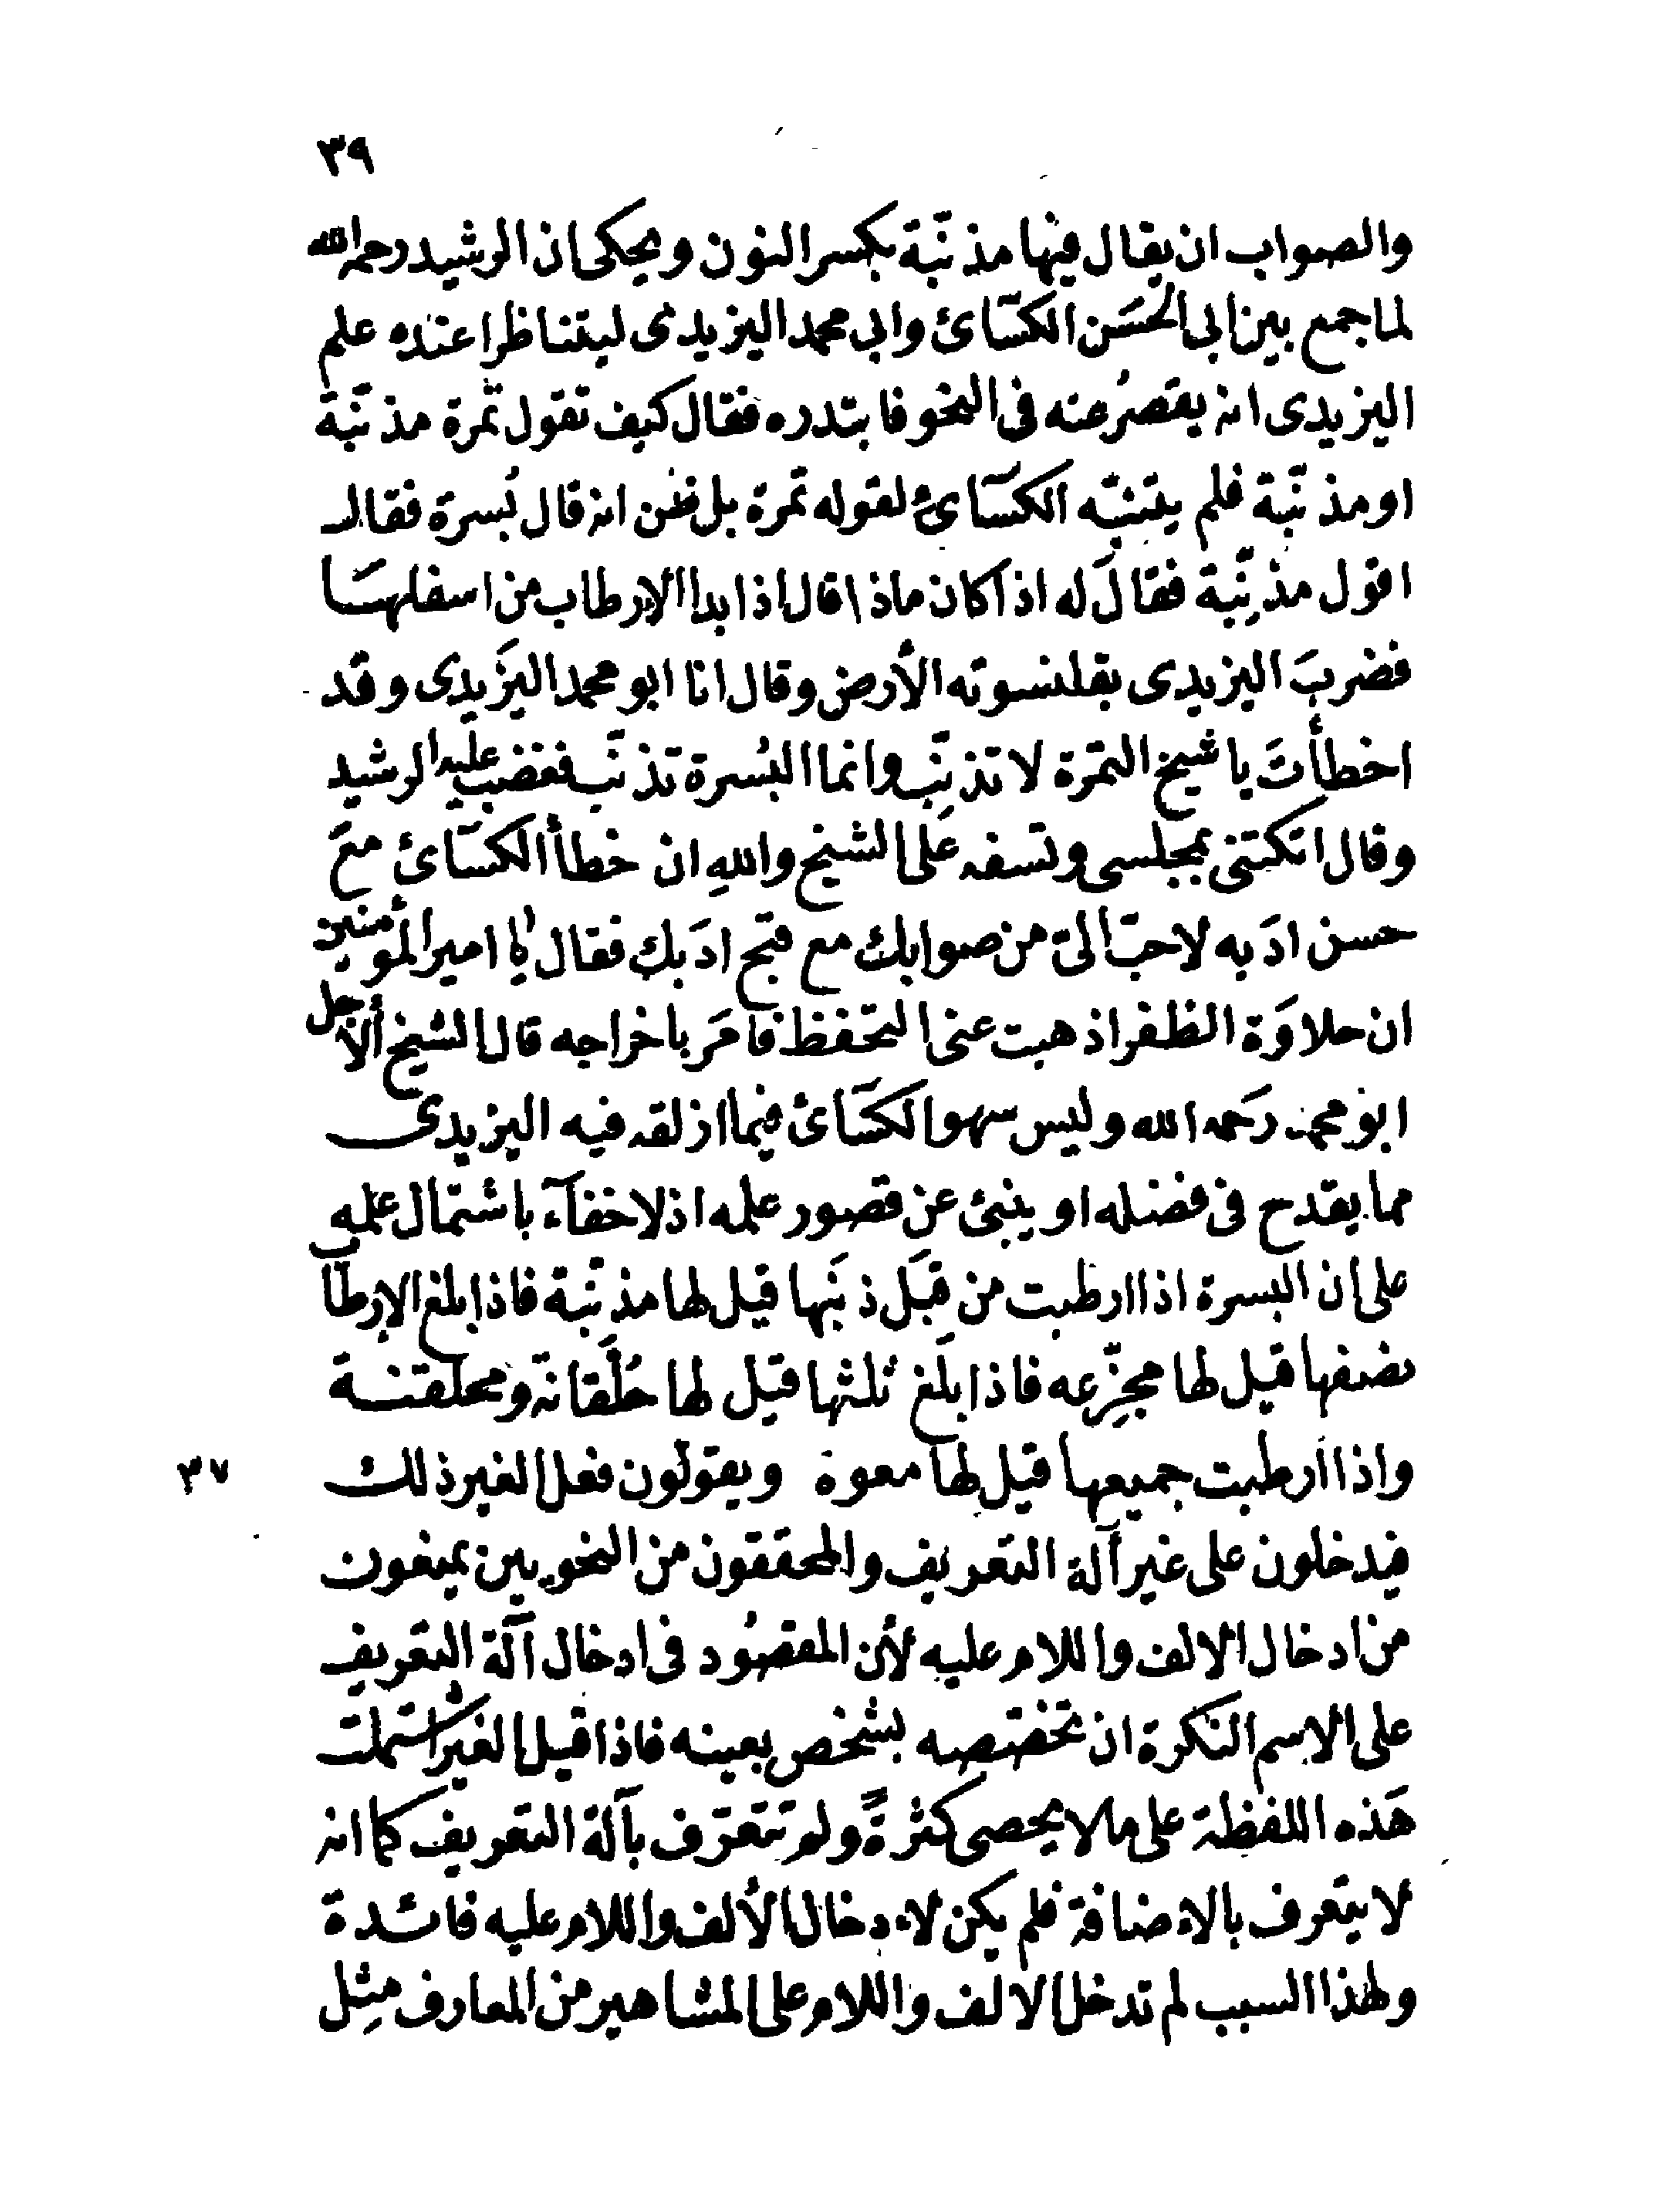 ٣٩
والصواب ان يقال فيها مذنّبة بكسر النون ويحكى ان الرشيد رحمه الله
لما جمع بين ابي الحسَن الكسَّائ وابي محمد اليزيدى ليتناظرا عنده علم
اليزيدى انه يقصرُ عنه فى النحو فابتدره فقال كيف تقول تمرة مذنّبة
او مذنّبة فلم يتنبّه الكسَّائ لقوله تمرة بل ظن انه قال بُسرة فقال
اقول مذنِّبة فقالَ له اذا كان ماذا قال اذا بدا الإرطاب من اسفلهَا
فضربَ اليزيدى بقلنسوته الأرض وقال انا ابو محمد اليَزيدى وقد
اخطأتَ يا شيخ التمرَة لا تذنّب وانما البُسرة تذنّب فغضب عليه الرشيد
وقال اتكتنى بمجلسى وتسفه عَلى الشيخ واللهِ ان خطأ الكسَّائ معَ
حسن ادَبه لاحبّ الىّ من صوابك مع قبح ادَبك فقال يا امير المؤمنين
ان حلاوَة الظفر اذهبت عنى التحفظ فامَر باخراجه قال الشيخ الأجل
ابو محمد رَحمه الله وليس سهو الكسَّائ فيما ازلقه فيه اليزيدى
مما يقدح فى فضله او ينبئ عن قصور علمه اذ لا خفآء باشتمال علمه
على ان البسرة اذا ارطبت من قبَل ذنَبها قيل لها مذنّبة فاذا بلغ الإرطاب
نصفها قيل لها مجزِّعه فاذا بلَغ ثلثها قيل لها حُلْقَانة ومحلقنة
واذا ارطبت جميعها قيل لها معوة ويقولون فعل الغير ذلك
٣٧
فيدخلون على غير آلة التعريف والمحققون من النحويين يمنعون
من ادخال الالف واللام عليه لأن المقصُود فى ادخال آلة التعريف
على الاسم النكرة ان تختصه بشخص بعينه فاذا قيل الغير اشتملت
هَذه اللفظة على ما لا يحصى كثرةً ولم تتعرّف بآلة التعريف كما انه
لا يتعرف بالاءضافة فلم يكن لاءدخال الألف واللام عليه فائدة
ولهذا السبب لم تدخل الالف واللام على المشاهير من المعارف مِثل